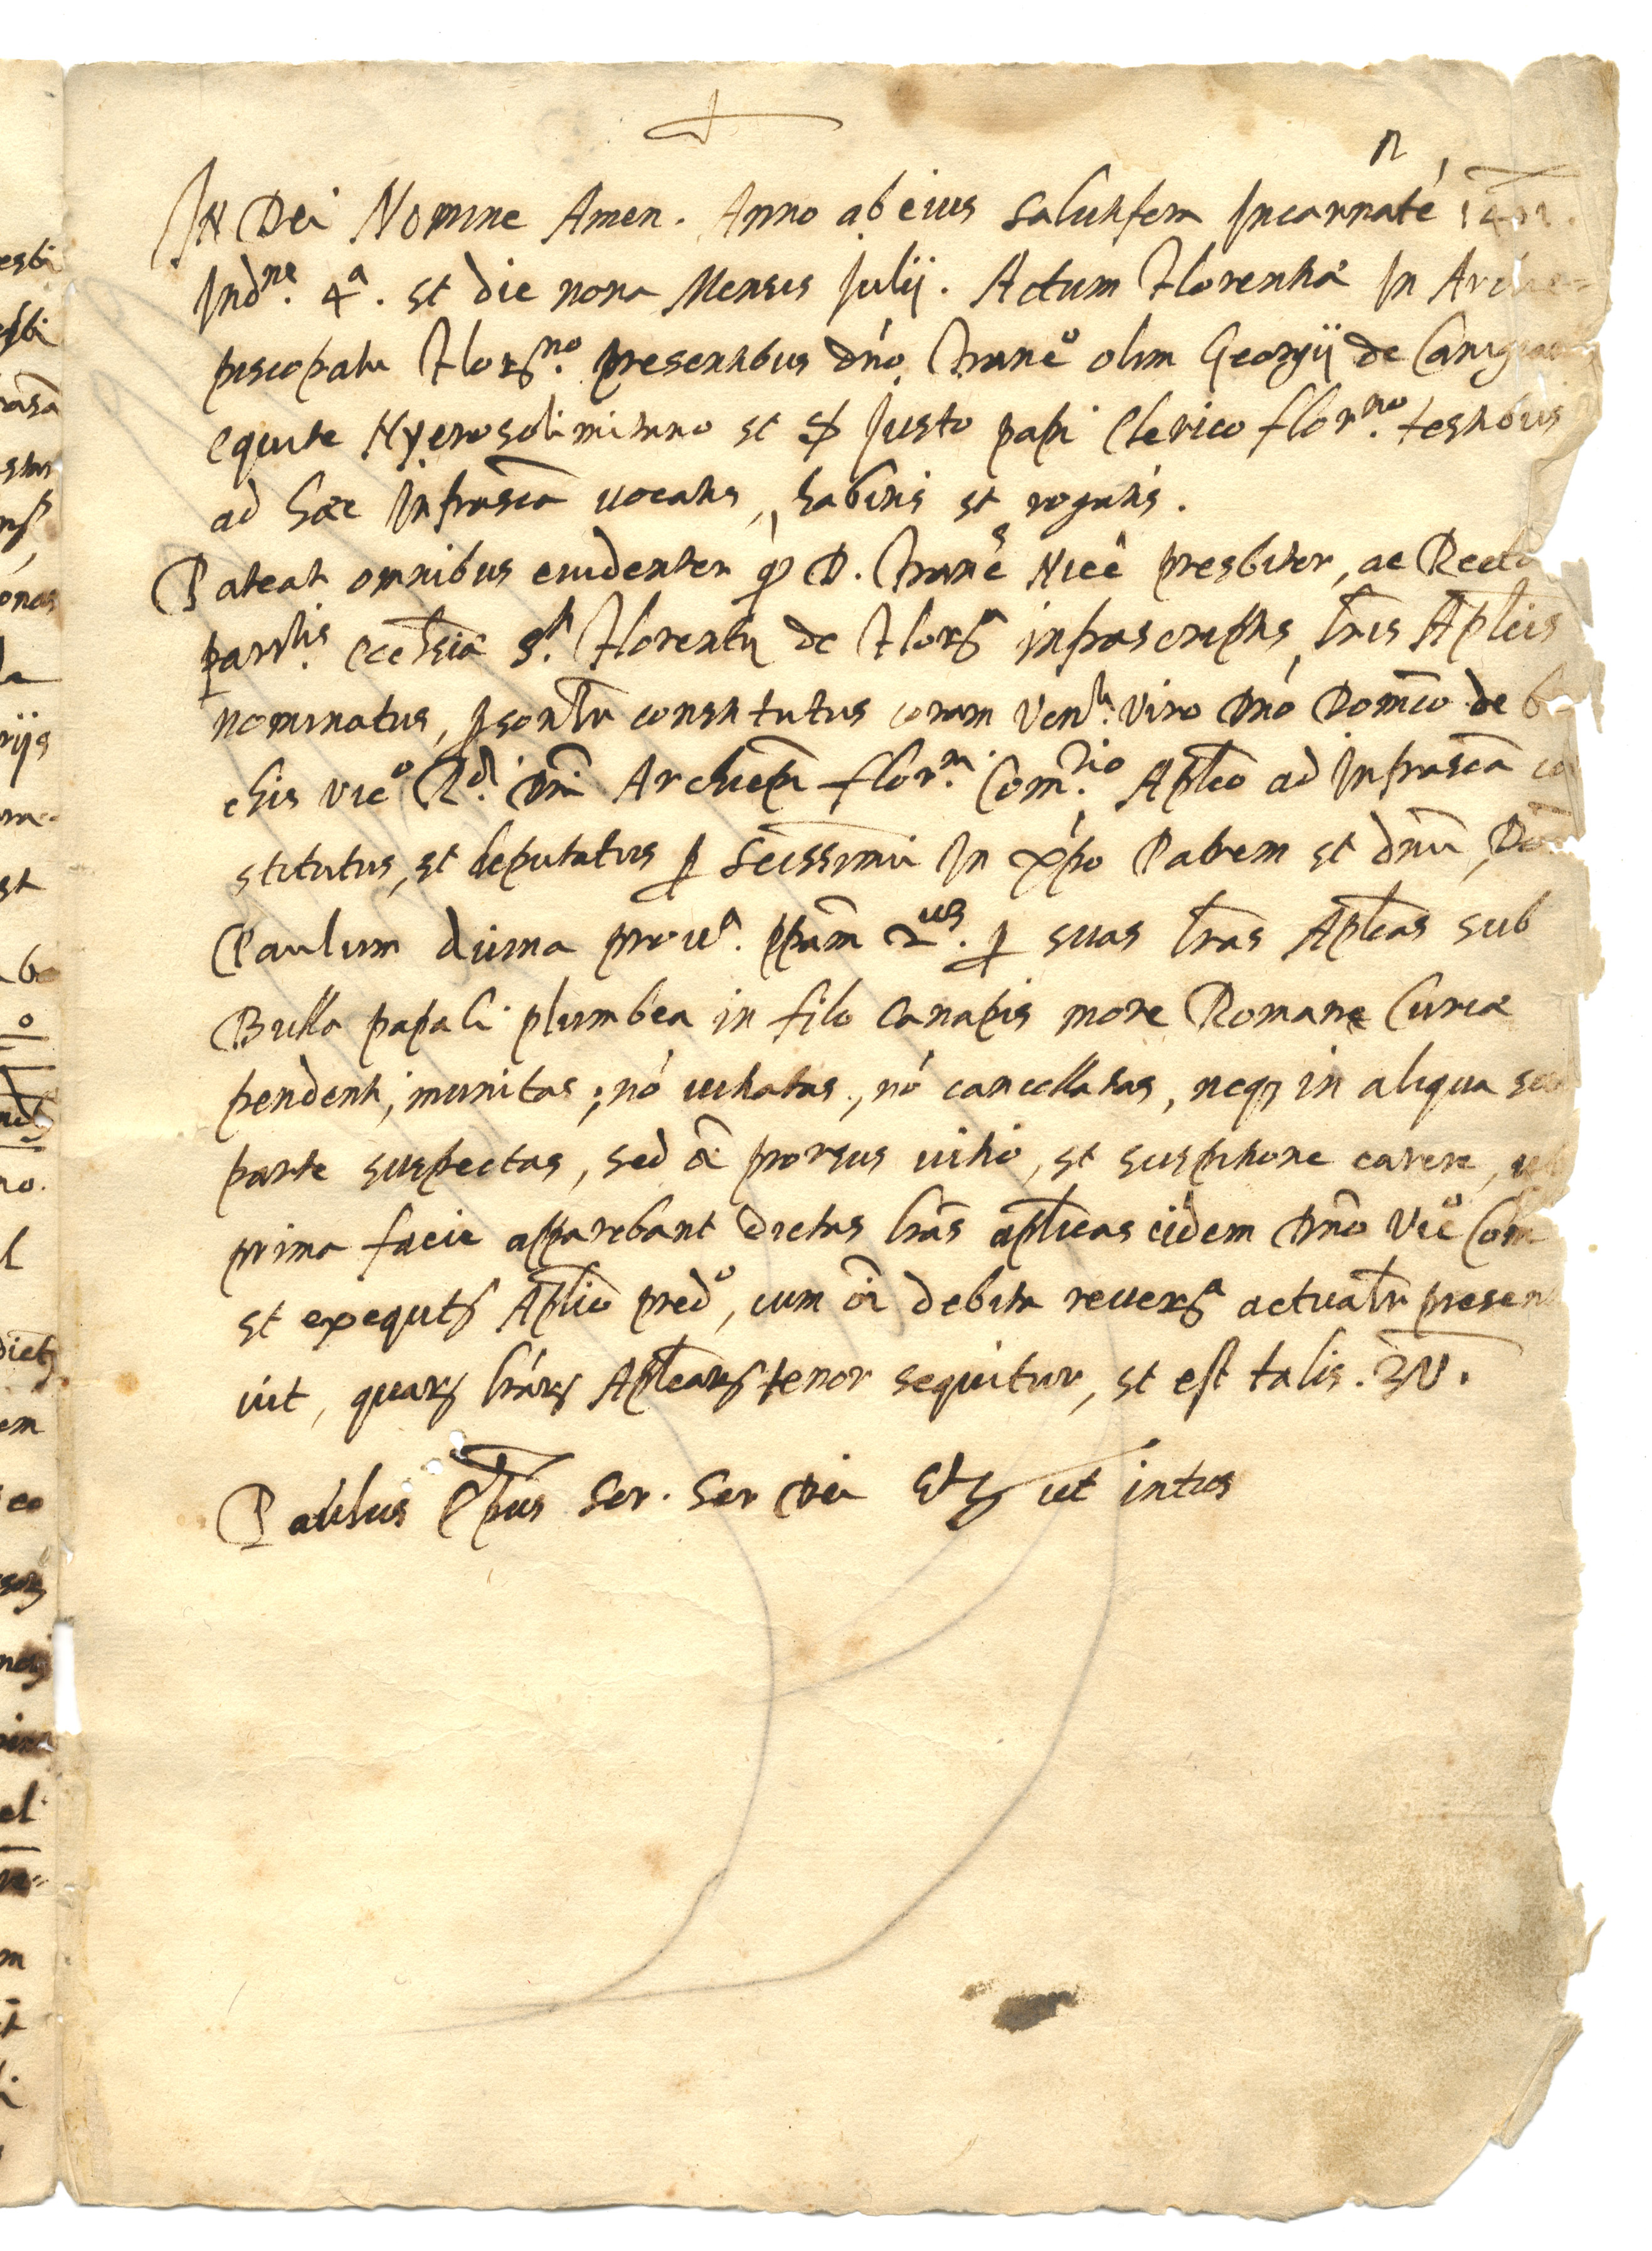 n
In Dei Nomine Amen. Anno ab eius salutifera Incarnatē
Indne. 4a. et die nona Mensis Julij. Actum Florentiae In Archie=
piscopatu Florno. presentibus dno. Franco olim Georgij de
equite Hyerosolimitano et Justo papi Clerico florno. testibus
ad haec Infrascta vocatis, habitis et rogatis.
Pateat omnibus evidenter qd D. Francs Nicē presbiter, ac Recto
parrlis. ecclesiae Sti. Florentij de Flor infrascriptis lris Aplcis
nominatus, psonlr constitutus coram Venli. viro Dno Domco de b
chis Vico Rdi. Dni Archiepi florni. Comrio. Aplco ad Infrascta co
stitutus, et deputatus p Scissimū In xpo Patrem et dnū, Dō
Paulum divina prova. ppam 2us. p suas lras Aplcas sub
Bulla papali plumbea in filo Canapis more Romane Curiae
pendenti, munitas; nō vitiatas, nō cancellatas, neq3 in aliqua sui
parte suspectas, sed oī prorsus vitio, et suspitione carere, ut
prima facie apparebant dictas lras aplicas eidem Dno Vico Com
et exequt Aplico predo, cum oī debita reverā actualr presenta
vit, quar lrar Aplcar tenor sequitur, et est talis. Vz.
Paulus Epus Ser. Ser Dei Et ut intus